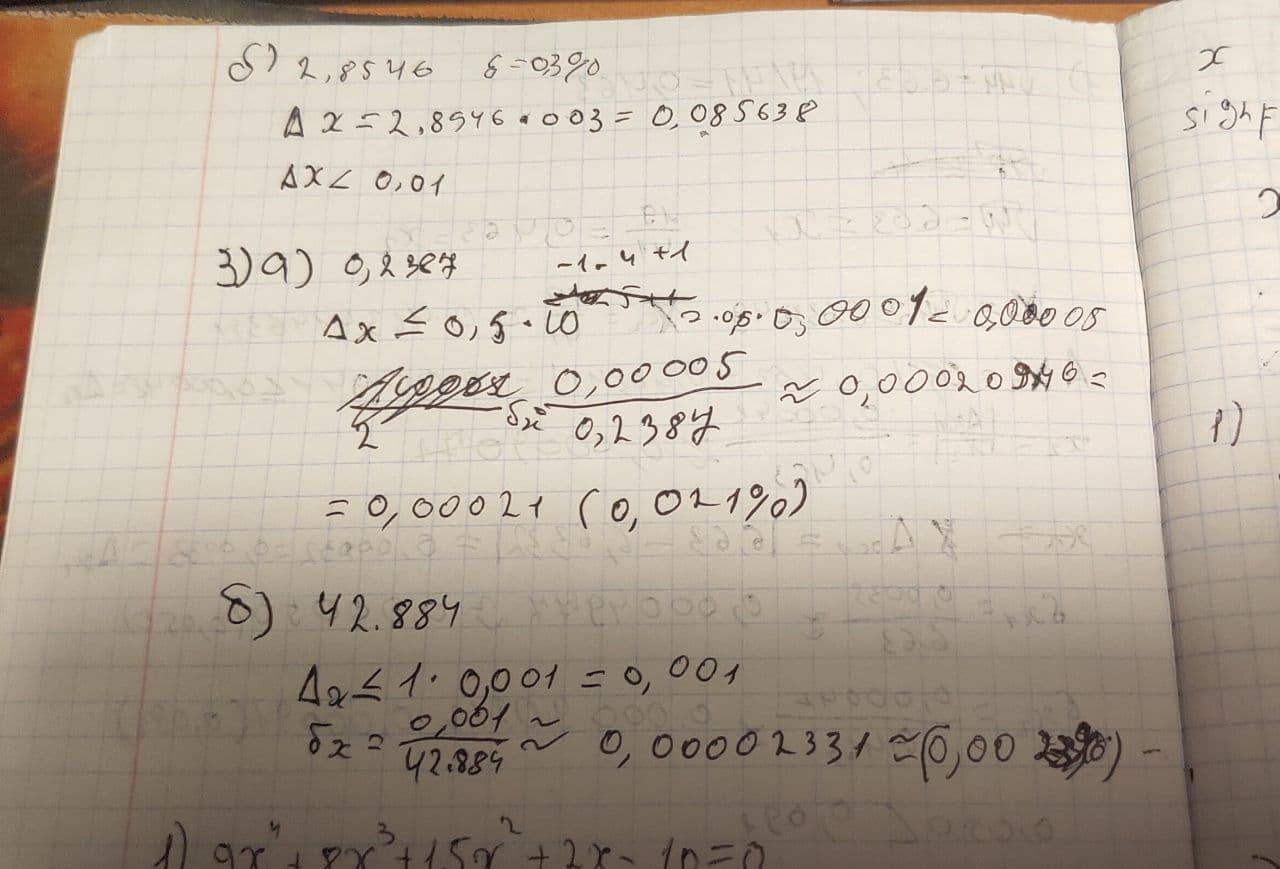 б) 2,8546 δ=0,3%
Δx=2,8546·003=0,085638
Δx<0,01
3)а) 0,2387
-1-4+1
Δx≤0,5·10 = ·0,5·0,0001=0,00005
δx= 0,00005 / 0,2387 ≈ 0,00020946=
2
=0,00021 (0,021%)
б) 42.884
Δx≤1·0,001=0,001
δx= 0,001 / 42.884 ≈ 0,00002331≈(0,0023%)-
1) 9x⁴+8x³+15x²+2x-10=0
x
sign F
1)